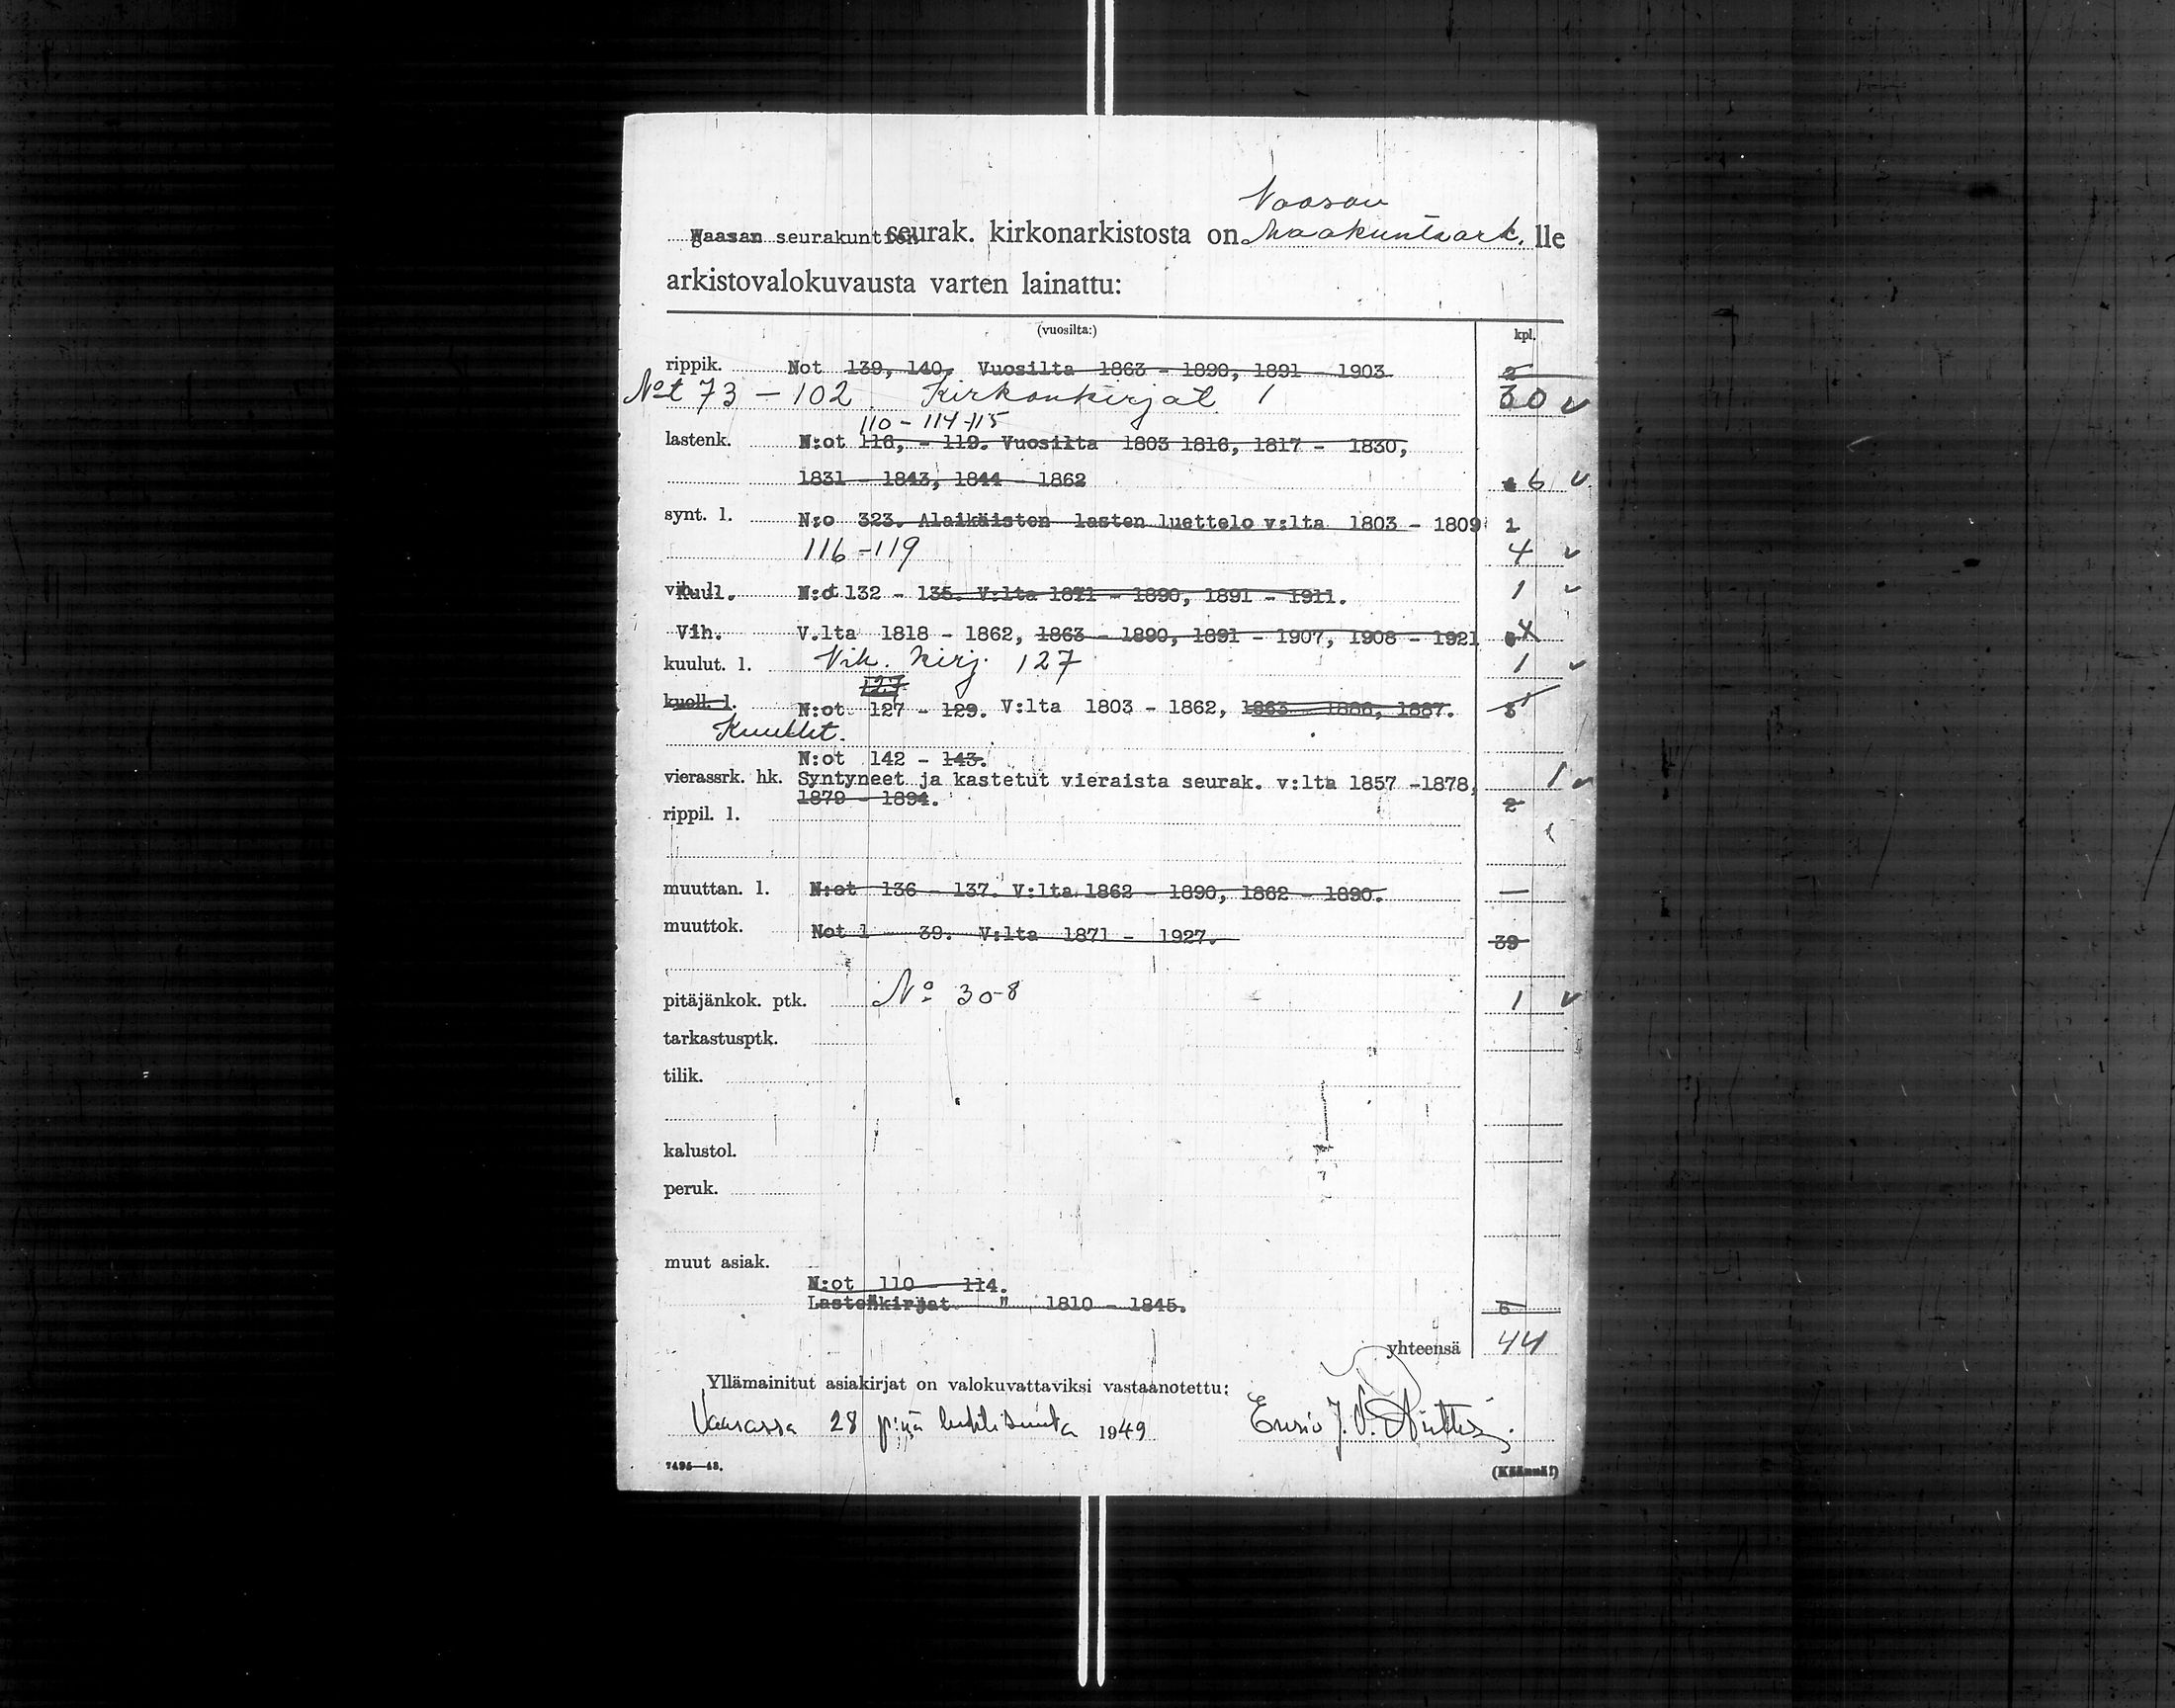 Vaasan
Waasan seurakuntien seurak. kirkonarkistosta on Maakuntaark. lle
arkistovalokuvausta varten lainattu:
(vuosilta:) kpl.
rippik. Not 139, 140, Vuosilta 1863 - 1890, 1891 - 1903 2
Not 73 - 102 Kirkonkirjat 1 30 v
110 - 114-115
lastenk. N:ot 116, - 119. Vuosilta 1803 1816, 1817 - 1830,
1831 - 1843, 1844 - 1862 6 v
synt. l. N:o 323. Alaikäisten lasten luettelo v:lta 1803 - 1809 1
116 - 119 4 v
Kuul. N:ot 132 - 135. V:lta 1871 - 1890, 1891 - 1911. 1 v
Vih. V.lta 1818 - 1862, 1863 - 1890, 1891 - 1907, 1908 - 1921 4
kuulut. l. Vih. kirj. 127 1 v
127
kuoll. l. N:ot 127 - 129. V:lta 1803 - 1862, 1863 - 1886, 1887. 3
Kuullut.
N:ot 142 - 143.
vierassrk. hk. Syntyneet ja kastetut vieraista seurak. v:lta 1857 -1878, 1 v
1879 - 1894. 2
rippil. l.
muuttan. l. N:ot 136 - 137. V:lta 1862 - 1890, 1862 - 1890. —
muuttok. Not 1 39. V:lta 1871 - 1927. 39
pitäjänkok. ptk. No 308 1 v
tarkastusptk.
tilik.
kalustol.
peruk.
muut asiak.
N:ot 110 - 114.
Lastenkirjat " 1810 - 1845. 5
yhteensä 44
Yllämainitut asiakirjat on valokuvattaviksi vastaanotettu:
Vaasassa 28 p:nä huhtikuuta 1949 Ensio J. V.
7495—48. (Käännä!)